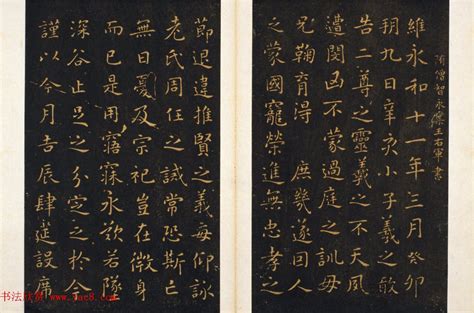 隋僧智永臨王右軍書
維永和十一年三月癸卯
朔九日辛亥小子羲之敢
告二尊之靈羲之不天夙
遭閔凶不蒙過庭之訓母
兄鞠育得 庶幾遂因人
之蒙國寵榮進無忠孝之
節退違推賢之義每仰詠
老氏周任之誡常恐斯亡
無日憂及宗祀豈在微身
而已是用寤寐永歎若隊
深谷止足之分定之於今
謹以今月吉辰肆筵設席
书法欣赏 www.yac8.com